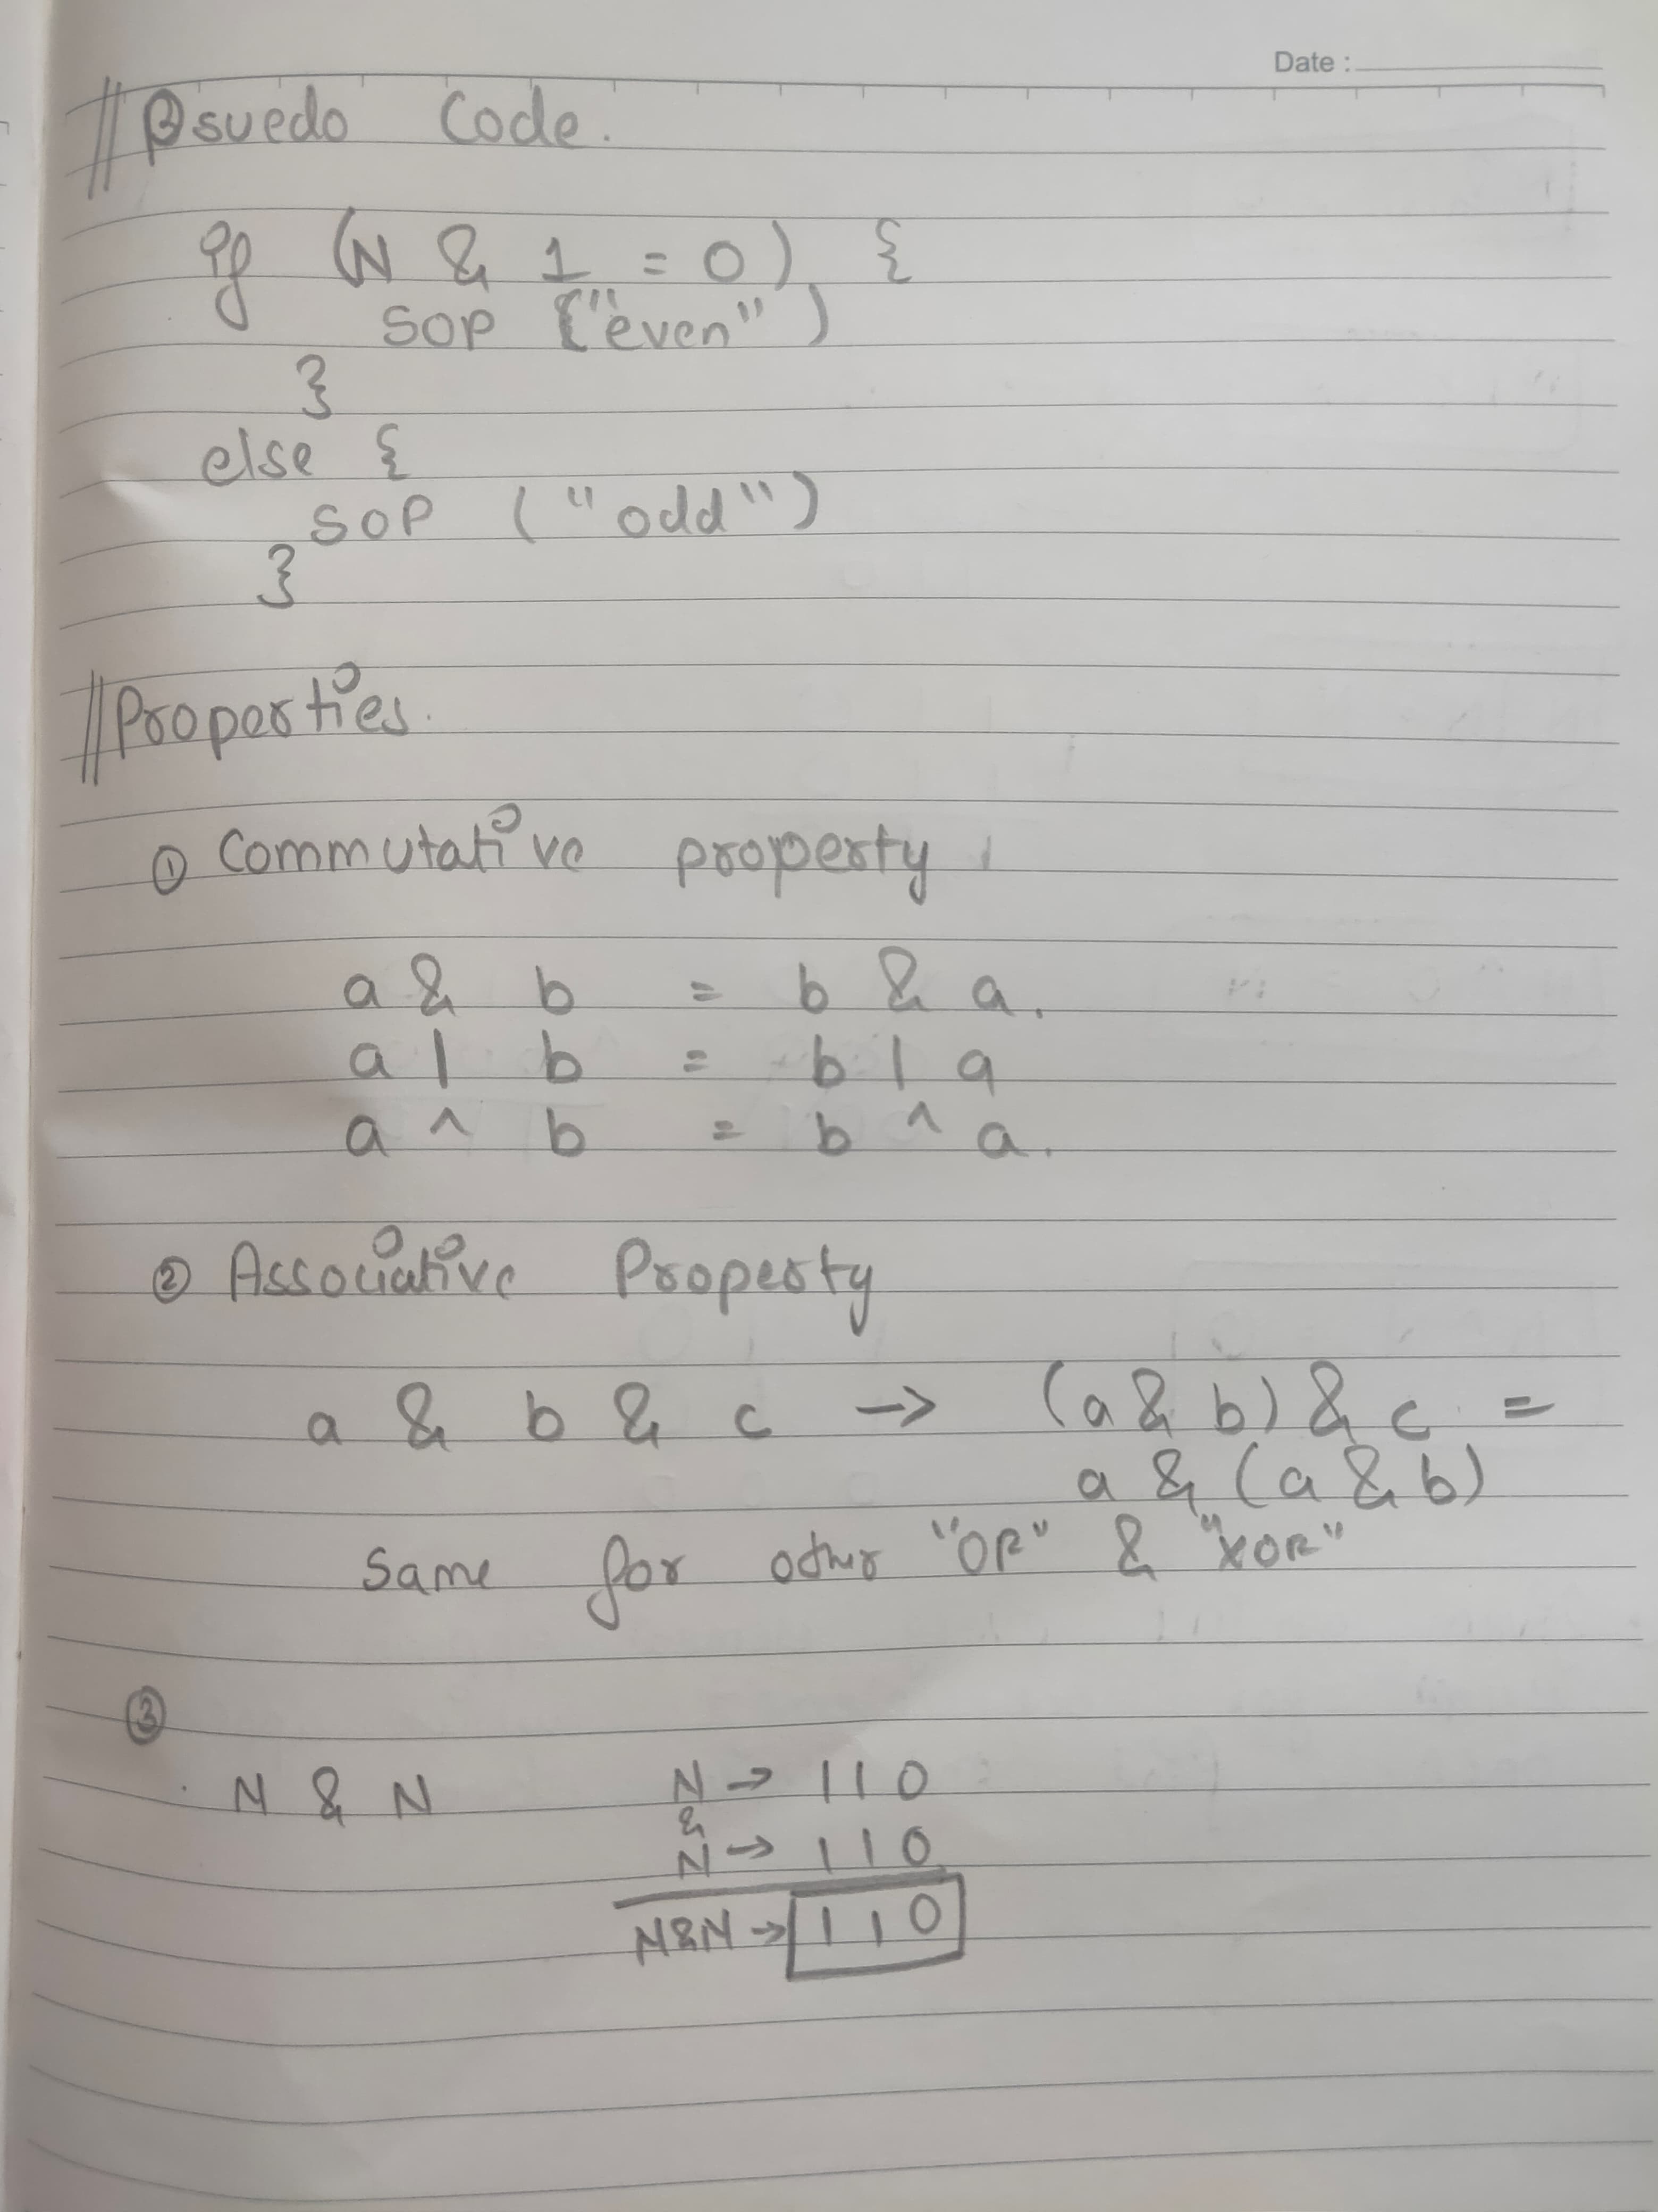 Date :
// Psuedo Code.
if (N & 1 = 0) {
sop ("even")
}
else {
SOP ("odd")
}
// Properties.
① Commutative property
a & b = b & a.
a | b = b | a
a ^ b = b ^ a.
② Associative Property
a & b & c → (a & b) & c =
a & (a & b)
Same for other "OR" & "XOR"
③
N & N N → 110
&
N → 110
N&N → 110